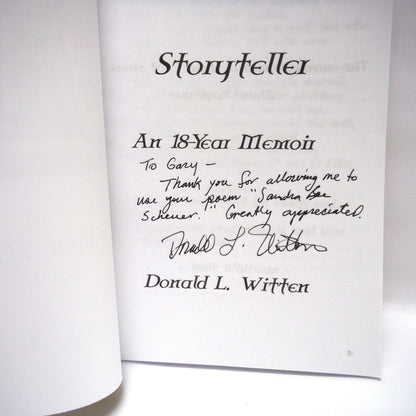 Storyteller
An 18-Year Memoir
To Gary —
Thank you for allowing me to
use your poem "Sandra Lee
Scheuer." Greatly appreciated.
Donald L. Witten
Donald L. Witten